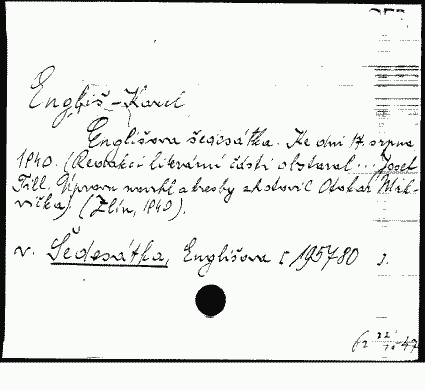 Engliš-Karel
Englišova šedesátka. Ke dni 17. srpna
1940. (Redakci literární části obstaral ... Josef
Fill. Úpravu navrhl a kresby zhotovil Otakar Mrk-
vička) (Zlín, 1940).
v. Šedesátka, Englišova [ 195780